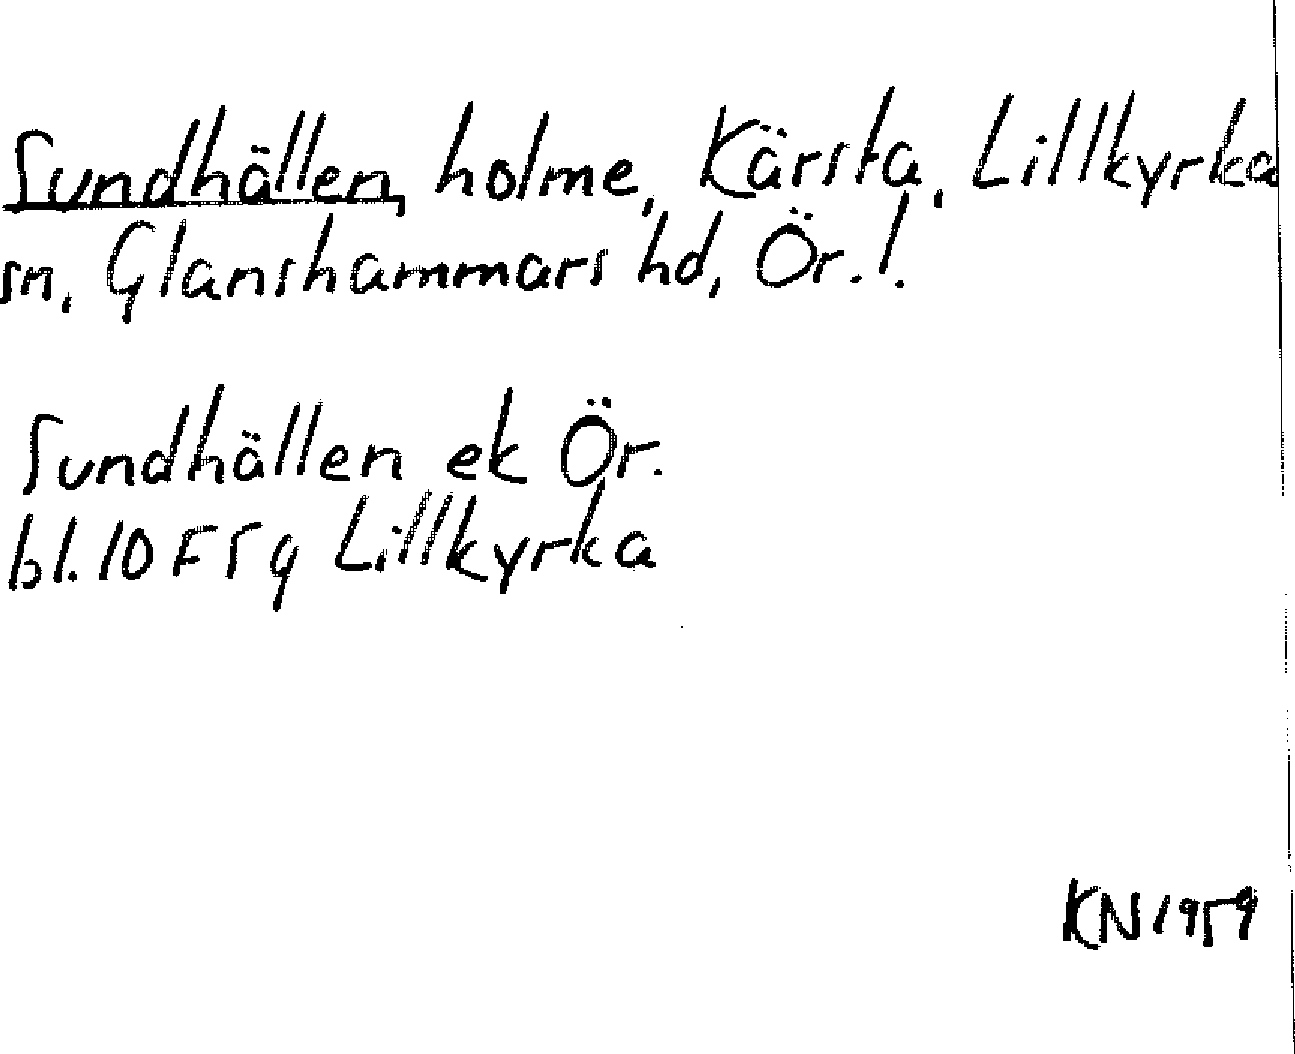 Sundhällen, holme, Kärsta, Lillkyrka
sn, Glanshammars hd, Ör. l.
Sundhällen ek Ör.
bl. 10 F 5 g Lillkyrka
KN 1959